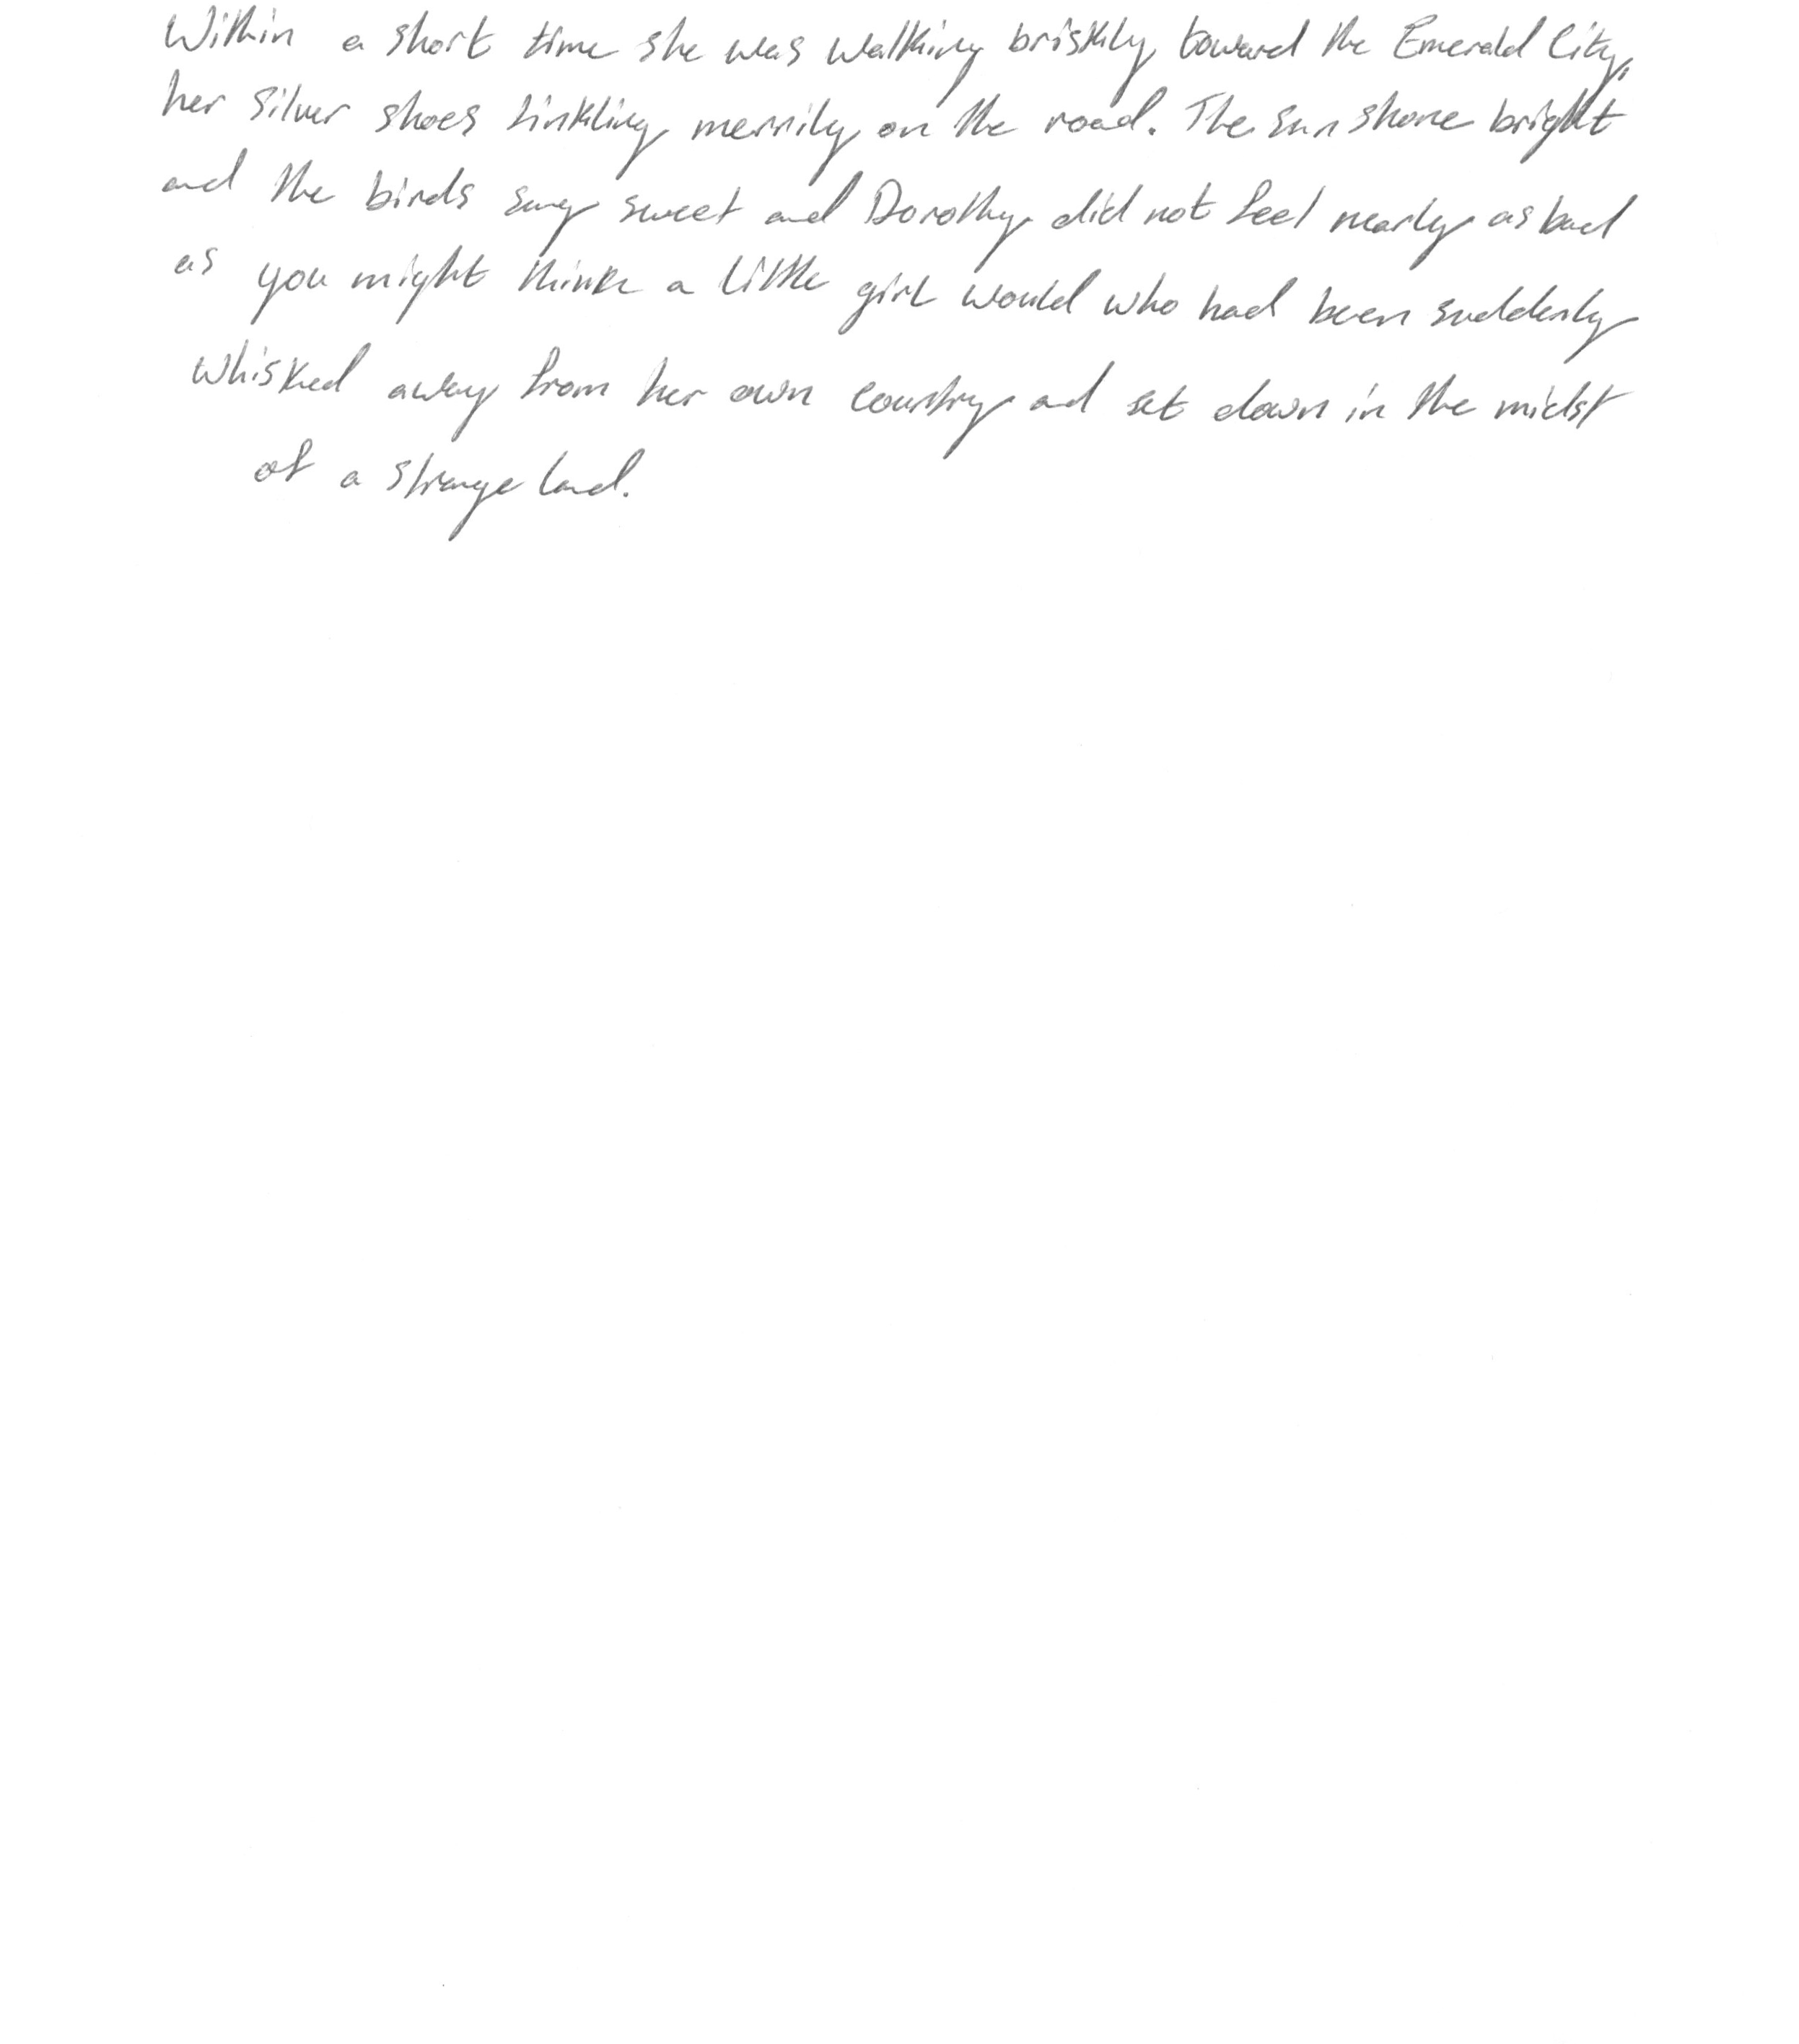 Within a short time she was walking briskly toward the Emerald City,
her silver shoes tinkling merrily on the road. The sun shone bright
and the birds sang sweet and Dorothy did not feel nearly as bad
as you might think a little girl would who had been suddenly
whisked away from her own country and set down in the midst
of a strange land.